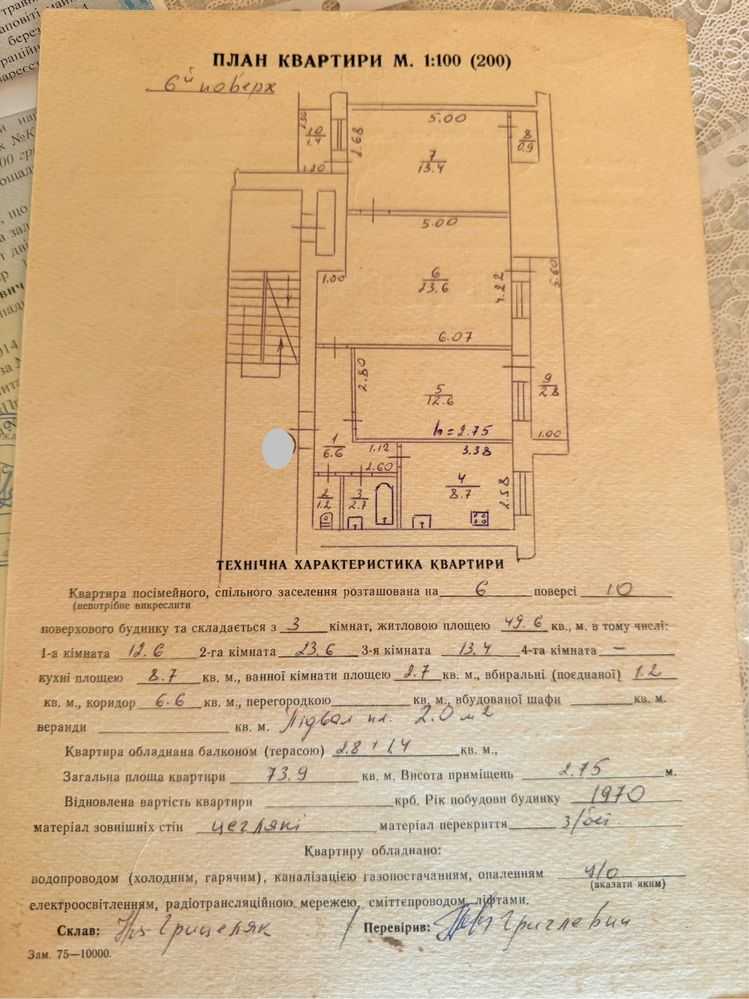 ПЛАН КВАРТИРИ М. 1:100 (200)
6й поверх
10
1.4
1.20
2.68
5.00
7
13.4
8
0.9
5.00
1.00
6
23.6
4.22
5.60
6.07
2.80
5
12.6
h=2.75
9
2.8
1.00
1
6.6
1.12
3.38
2.60
2
1.2
3
2.7
4
8.7
2.58
ТЕХНІЧНА ХАРАКТЕРИСТИКА КВАРТИРИ
Квартира посімейного, спільного заселення розташована на 6 поверсі 10
(непотрібне викреслити
поверхового будинку та складається з 3 кімнат, житловою площею 49.6 кв., м. в тому числі:
1-а кімната 12.6 2-га кімната 23.6 3-я кімната 13.4 4-та кімната —
кухні площею 8.7 кв. м., ванної кімнати площею 2.7 кв. м., вбиральні (поєднаної) 1.2
кв. м., коридор 6.6 кв. м., перегородкою кв. м., вбудованої шафи кв. м.
веранди кв. м. Підвал пл. 2.0 м2
Квартира обладнана балконом (терасою) 2.8 + 1.4 кв. м.,
Загальна площа квартири 73.9 кв. м. Висота приміщень 2.75 м.
Відновлена вартість квартири крб. Рік побудови будинку 1970
матеріал зовнішніх стін цегляні матеріал перекриття з/бет
Квартиру обладнано:
водопроводом (холодним, гарячим), каналізацією газопостачанням, опаленням ц/о
(вказати яким)
електроосвітленням, радіотрансляційною мережею, сміттєпроводом, ліфтами.
Склав: Грицеляк Перевірив: Григлевич
Зам. 75—10000.